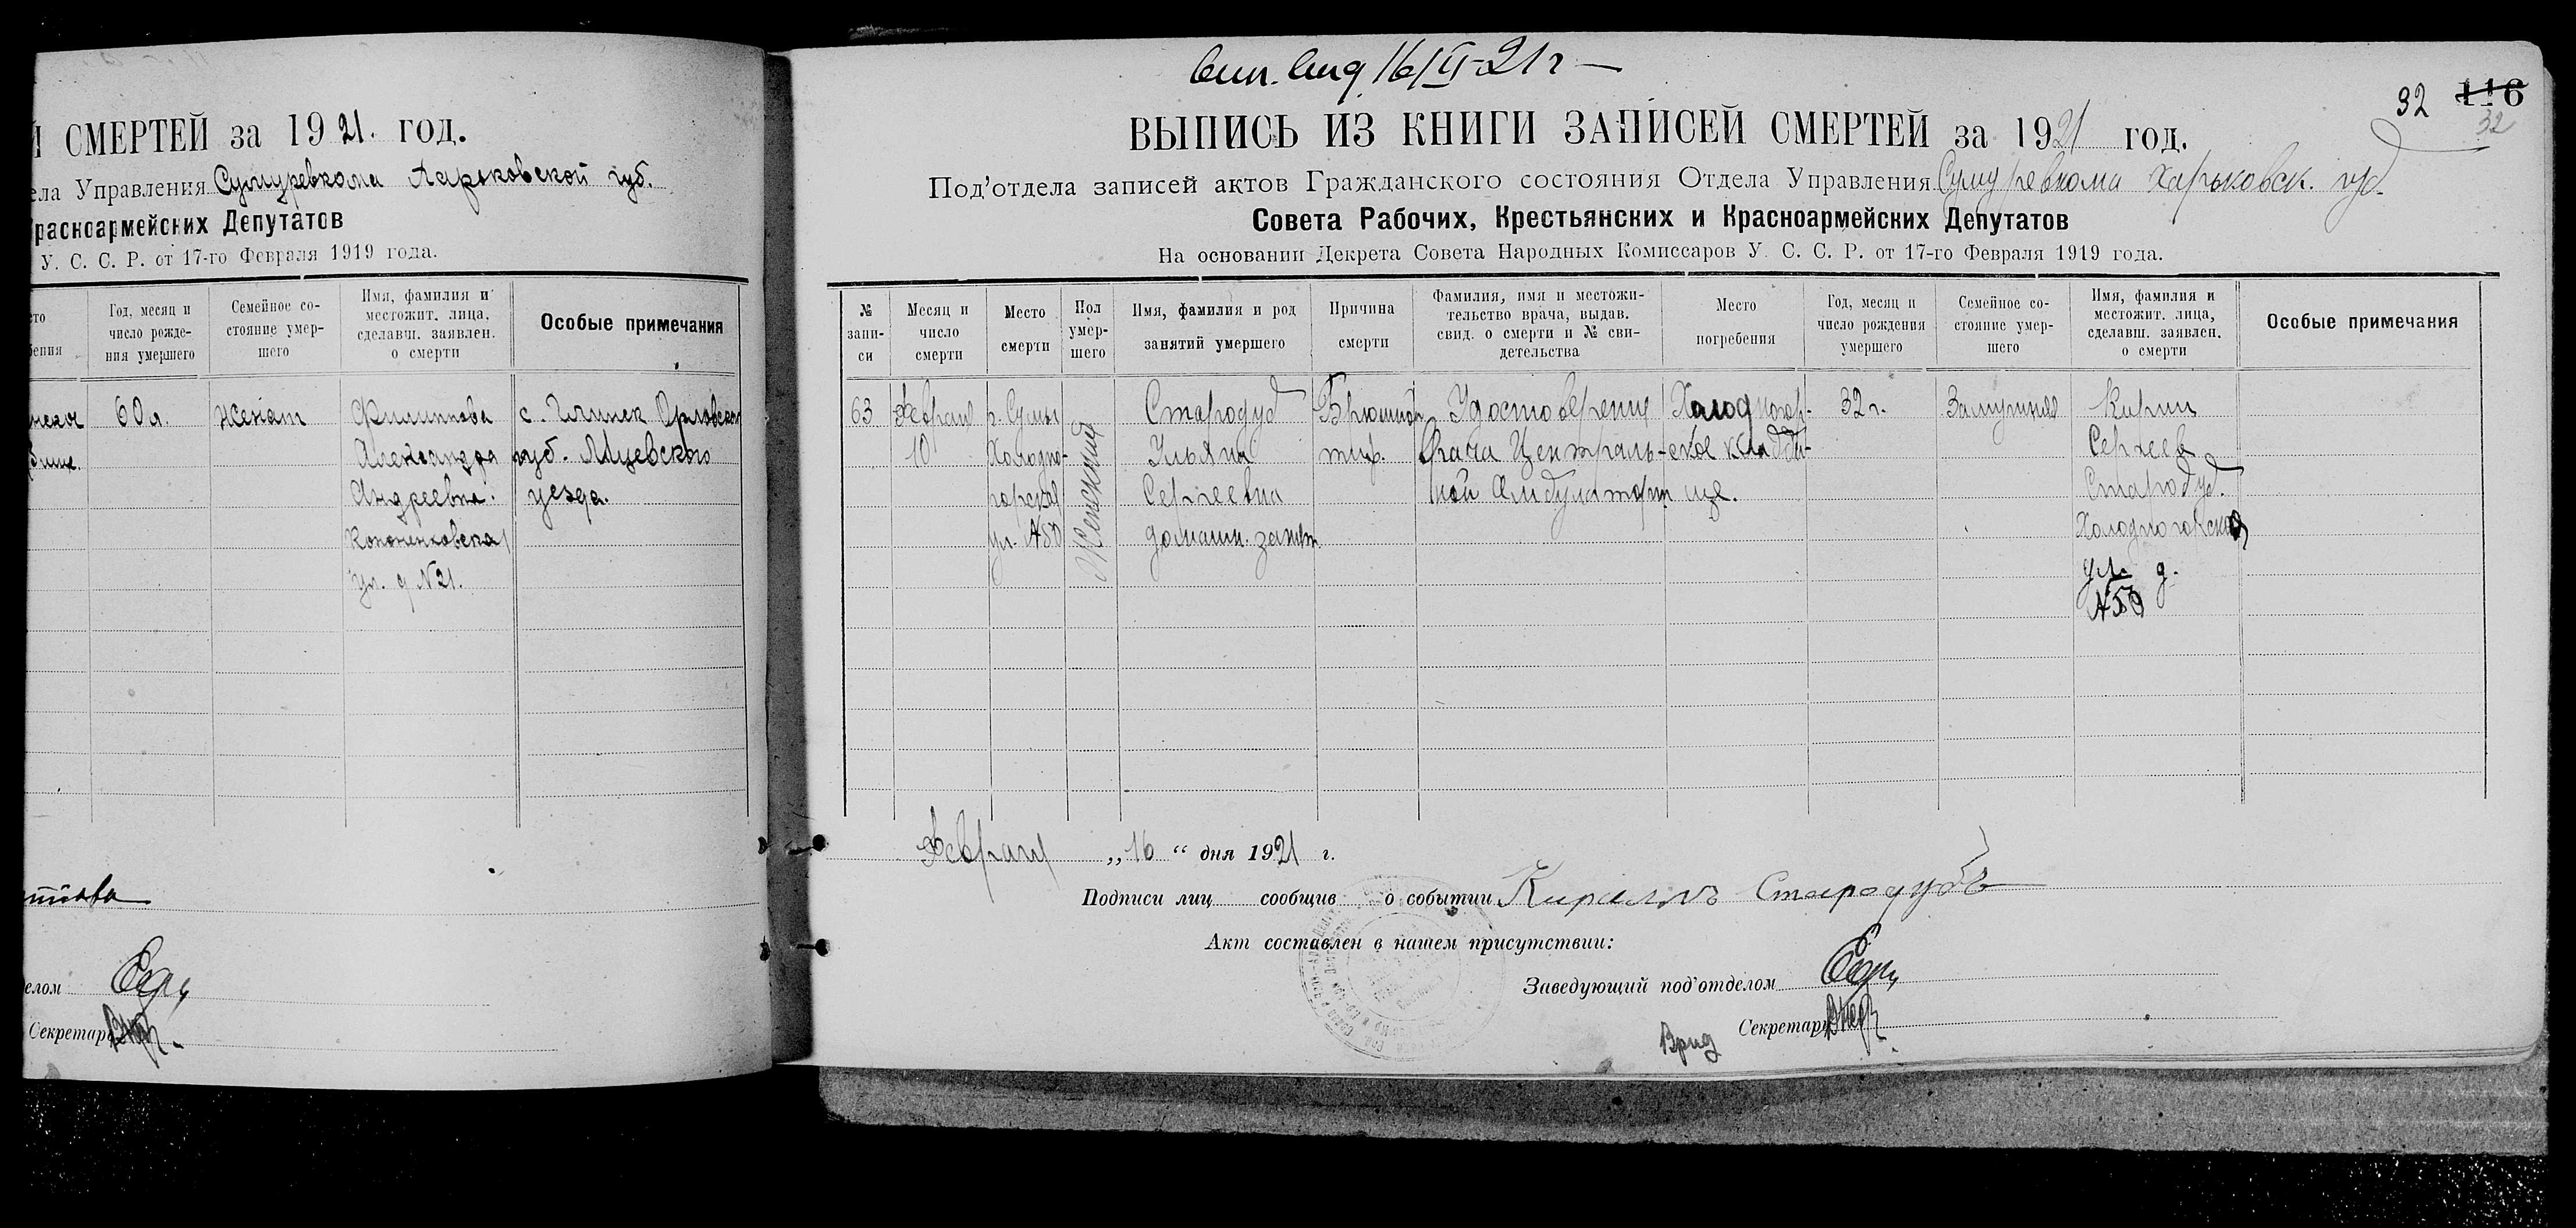 И СМЕРТЕЙ за 1921. год.
ела Управления Сумуревкома Харьковской губ.
расноармейских Депутатов
У. С. С. Р. от 17-го Февраля 1919 года.
Год, месяц и число рожде- ния умершего
Семейное со- стояние умер- шего
Имя, фамилия и местожит. лица, сделавш. заявлен. о смерти
Особые примечания
60 л.
женат
Филиппова
Александра
Андреевна.
Кононенковская
ул. д N 21.
с. Глинек Орловской
губ. Мцевского
уезда.
елом
Секретарь
16/II-21 г
32 116
32
ВЫПИСЬ ИЗ КНИГИ ЗАПИСЕЙ СМЕРТЕЙ за 1921 год.
Под'отдела записей актов Гражданского состояния Отдела Управления Сумуревкома Харьковск. губ.
Совета Рабочих, Крестьянских и Красноармейских Депутатов
На основании Декрета Совета Народных Комиссаров У. С. С. Р. от 17-го Февраля 1919 года.
№ запи- си
Месяц и число смерти
Место смерти
Пол умер- шего
Имя, фамилия и род занятий умершего
Причина смерти
Фамилия, имя и местожи- тельство врача, выдав. свид. о смерти и № сви- детельства
Место погребения
Год, месяц и число рождения умершего
Семейное со- стояние умер- шего
Имя, фамилия и местожит. лица, сделавш. заявлен. о смерти
Особые примечания
63
Февраля
10
г. Сумы
Холодно-
горская
ул. N 50
Женский
Стародуб
Ульяна
Сергеевна
домашн. занят.
Брюшной
тиф.
Удостоверение
врача Централь-
ной Амбулатории
Холодногор-
ское кладби-
ще.
32 г.
Замужняя
Кирил
Сергеев
Стародуб.
Холодногорская
ул. д.
N 50
Февраля „16“ дня 1921 г.
Подписи лиц сообщив о событии Кирилъ Стародубъ
Акт составлен в нашем присутствии:
Заведующий под'отделом
Врид Секретарь